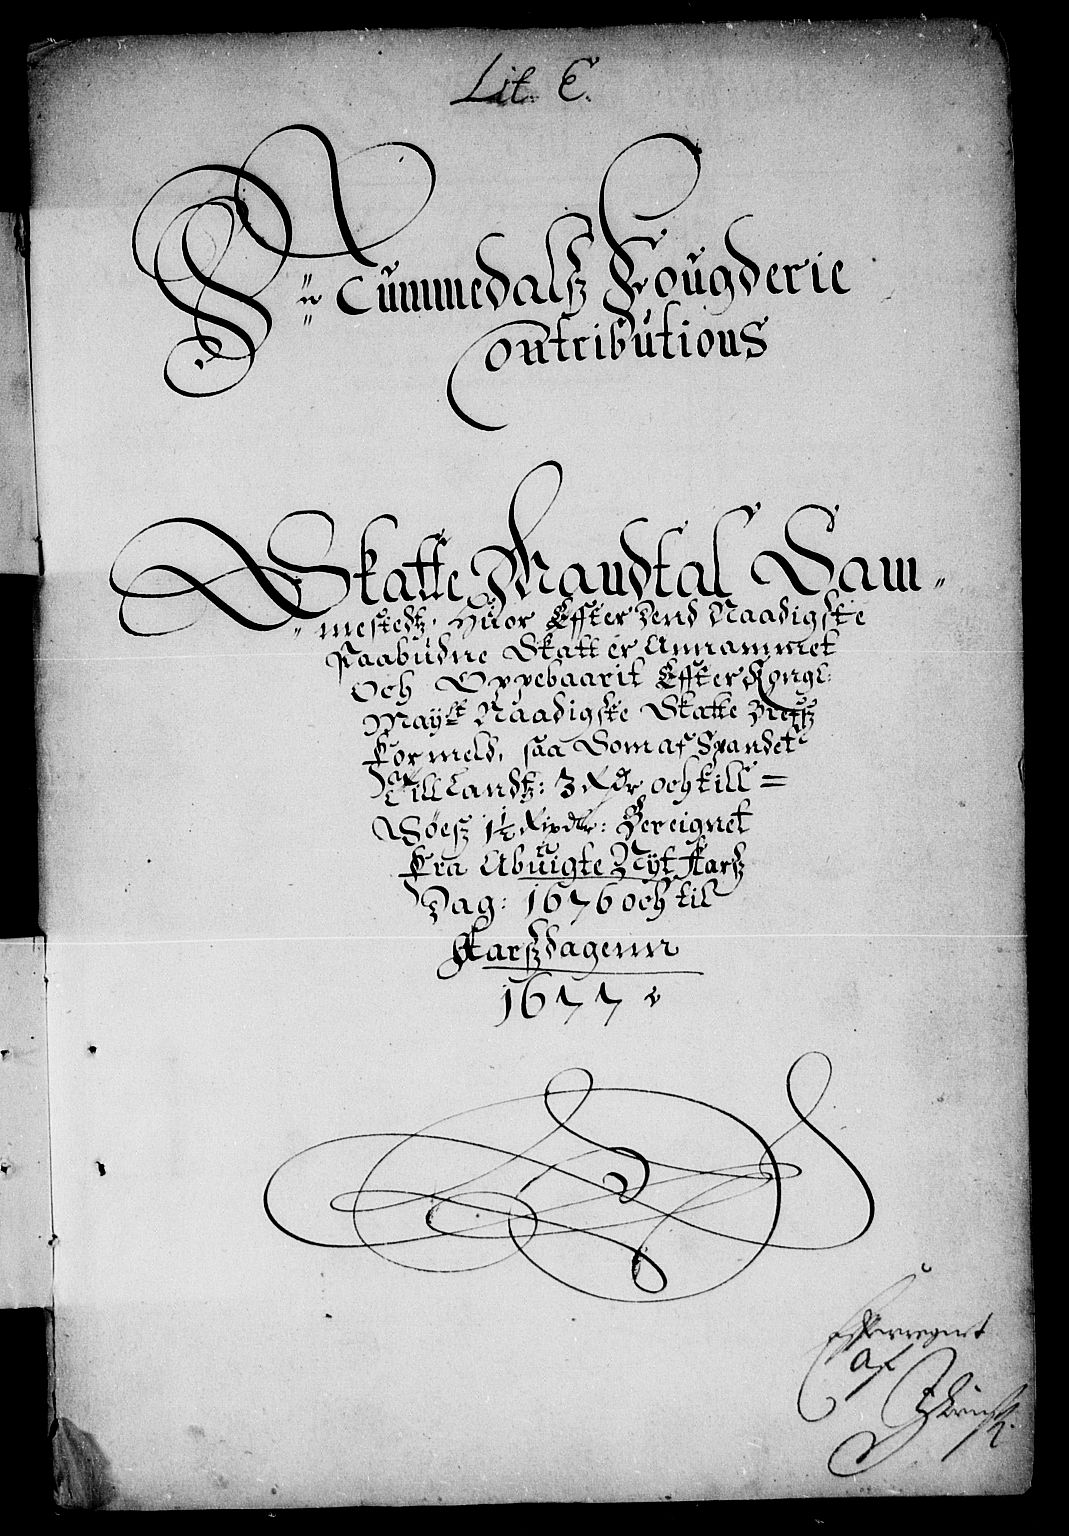 Lit C.
Nummedalß Fougderie
Contributions
Skatte Mandtal Sam„
„mestedtz, Huor Effter dend Naadigste
Paabudne Skatt er Annammet
Och Oppebaarit Effter Kongl:
Mayst Naadigste Skatte Brefs
Formeld, saa Som af Spandet
Till Landtz: 3 Rdr och till =
Søesz 1½ Rixdlr: Bereignet
Fra Abuigte Nyt Aarsz
Dag: 1676 och til
Aarszdagenn
1677
Efterregnet
af